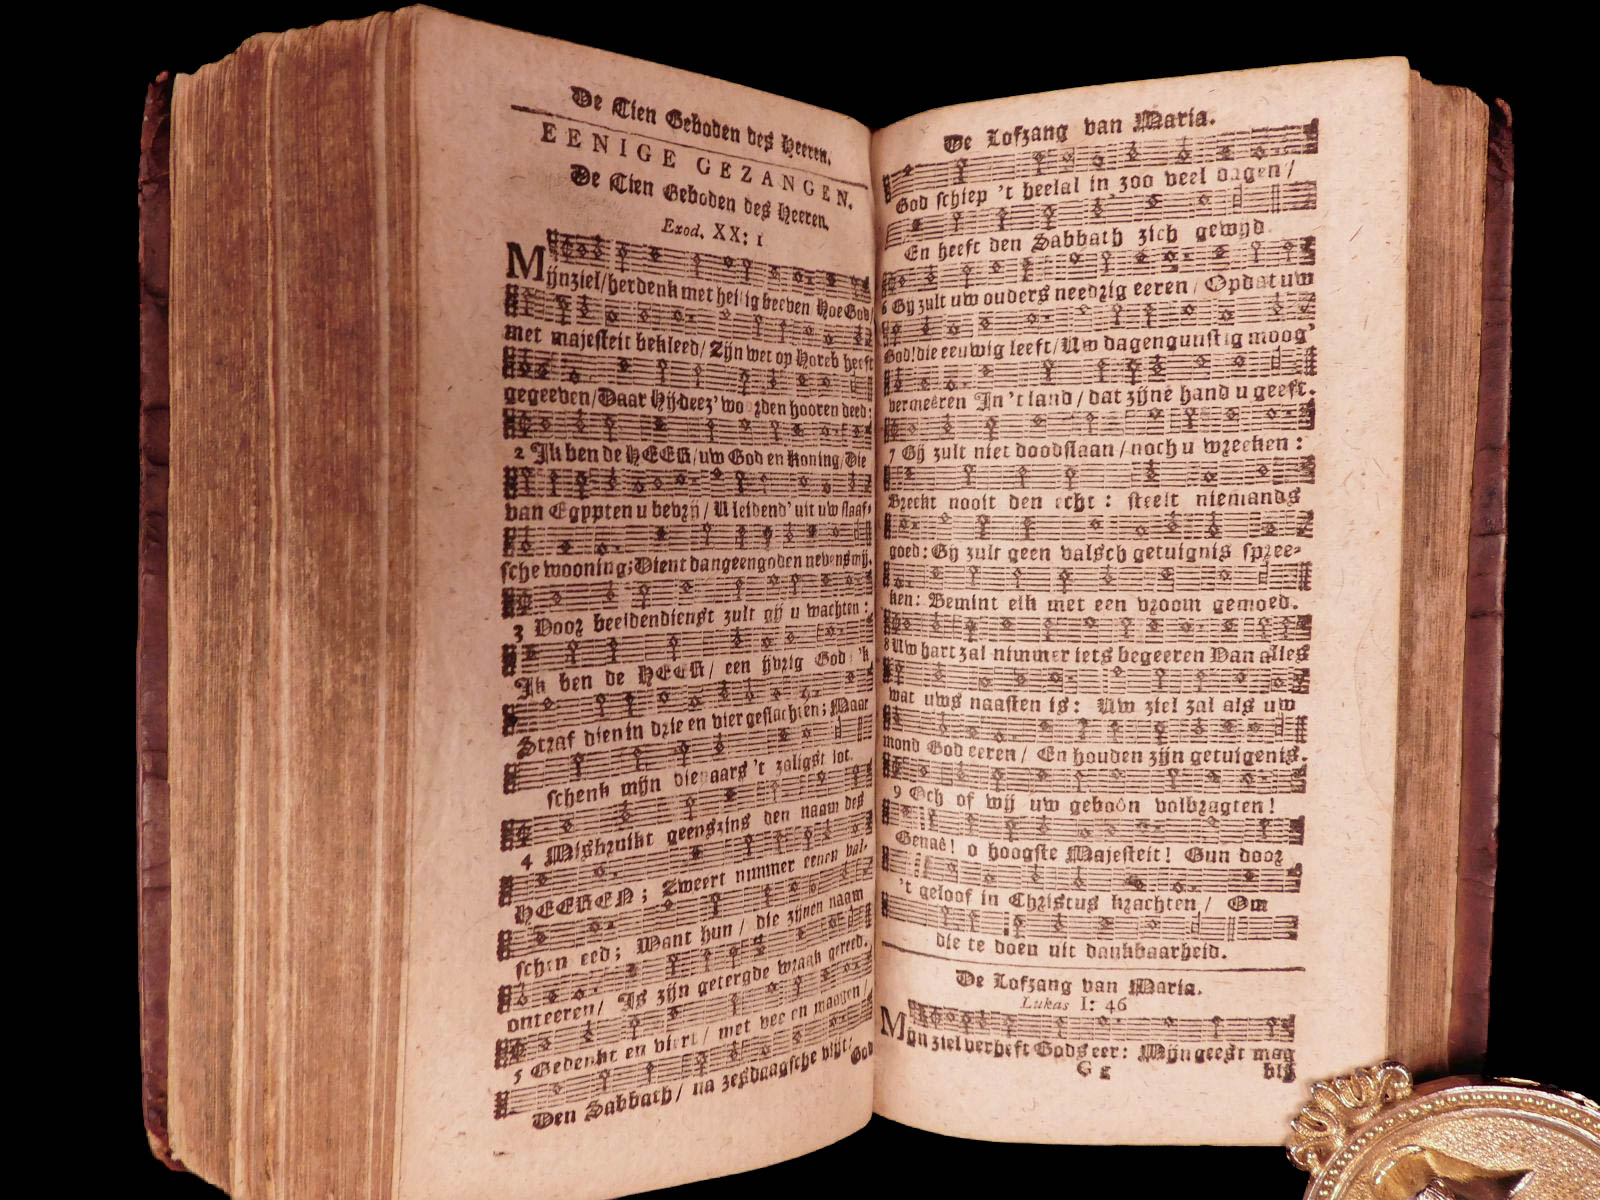 De Tien Geboden des Heeren.
EENIGE GEZANGEN.
De Tien Geboden des Heeren.
Exod. XX: 1
Mijn ziel/ herdenk met heilig beeven Hoe God/
met majesteit bekleed/ Zijn wet op Horeb heeft
gegeeven/ Daar Hij deez' woorden hooren deed:
2 Ik ben de HEER/ uw God en Koning/ Die
van Egypten u bevrij/ U leidend' uit uw slaaf-
sche wooning; Dient dan geen goden nevens mij.
3 Voor beeldendienst zult gij u wachten:
Ik ben de HEER/ een ijvrig God; 'k
Straf dien in drie en vier geslachten; Maar
schenk mijn dienaars 't zaligst lot.
4 Misbruikt geenszins den naam des
HEEREN; Zweert nimmer eenen val-
schen eed; Want hun/ die zijnen naam
onteeren/ Is zijn getergde wraak gereed.
5 Gedenkt en viert/ met vee en maagen/
Den Sabbath/ na zesdaagsche vlijt/ God
De Lofzang van Maria.
God schiep 't heelal in zoo veel dagen/
En heeft den Sabbath zich gewijd.
6 Gij zult uw ouders needrig eeren/ Opdat uw
God! die eeuwig leeft/ Uw dagen gunstig moog'
vermeêren In 't land/ dat zijne hand u geeft.
7 Gij zult niet doodslaan/ noch u wreeken:
Breekt nooit den echt: steelt niemands
goed: Gij zult geen valsch getuignis spree-
ken: Bemint elk met een vroom gemoed.
8 Uw hart zal nimmer iets begeeren Van alles
wat uws naasten is: Uw ziel zal als uw
mond God eeren/ En houden zijn getuigenis.
9 Och of wij uw geboôn volbragten!
Genaê! o hoogste Majesteit! Gun door
't geloof in Christus krachten/ Om
die te doen uit dankbaarheid.
De Lofzang van Maria.
Lukas I: 46
Mijn ziel verheft Gods eer: Mijn geest mag
G g blij